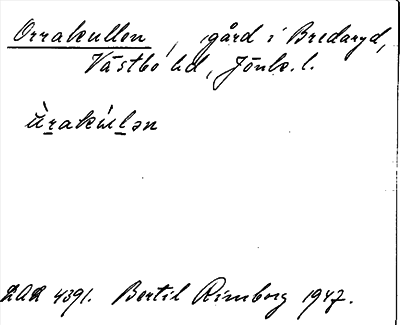 Orrakullen, gård i Bredaryd,
Västbo hd, Jönk. l.
ùrakúllən
LAL 4391. Bertil Rimborg 1947.